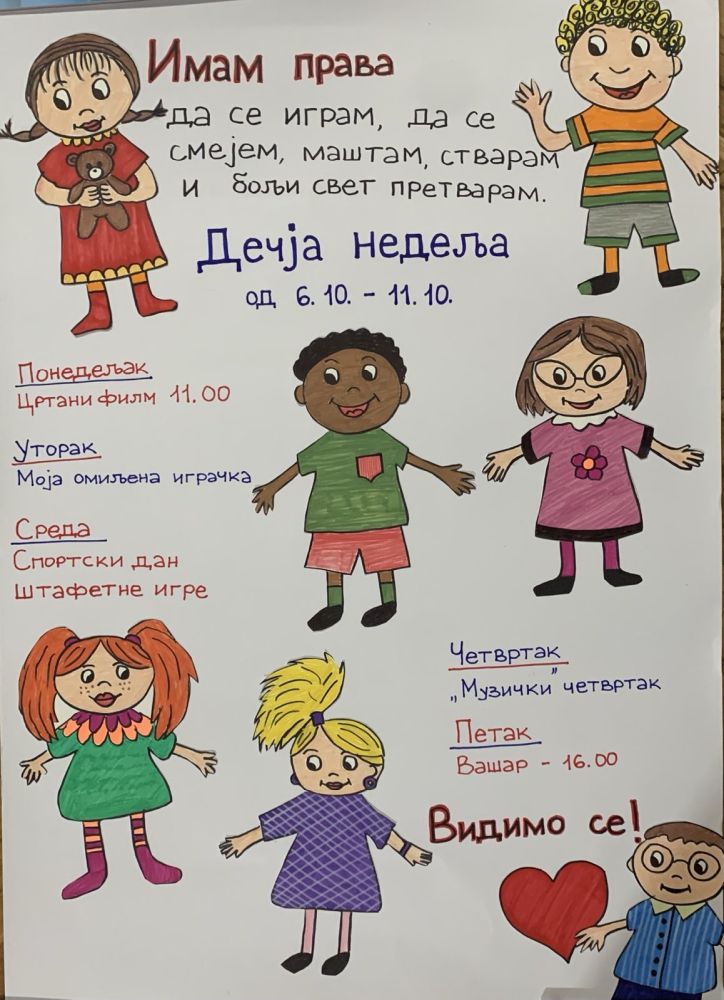 Имам права
да се играм, да се
смејем, маштам, стварам
и бољи свет претварам.
Дечја недеља
од 6. 10. - 11.10.
Понедељак
Цртани филм 11.00
Уторак
Моја омиљена играчка
Среда
Спортски дан
штафетне игре
Четвртак
„Музички" четвртак
Петак
Вашар - 16.00
Видимо се!